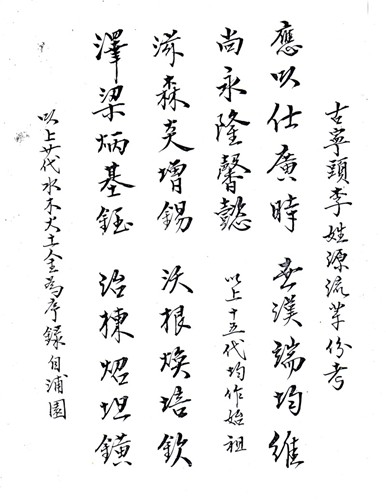 古寧頭李姓源流字份考
應以仕廣時 世漢端均維
尚永隆馨懿 以上十五代均作始祖
滋森炎增錫 沃根煥培欽
澤梁炳基鈺 治棟炤坦鐄
以上廿代水木火土金為序錄自浦園